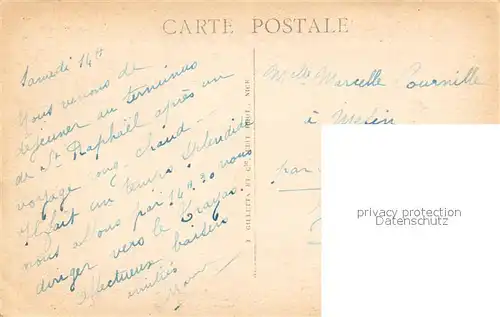 CARTE POSTALE
Samedi 14
Nous venons de
déjeuner au terminus
de St Raphaël après un
voyage chaud
Il fait un temps splendide
nous allons par 14h.30 nous
diriger vers le Trayas.
affectueux baisers
amitiés
GILLETTA NICE
Melle Marcelle Tourville
à
par
privacy protection
Privatsphärenschutz